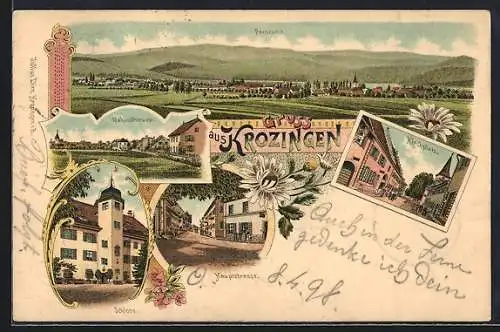 Panorama
Gruss
aus KROZINGEN
Bahnhofstrasse
Kirchplatz
Schloss
Hauptstrasse.
Auch in der Ferne
gedenke ich Dein
8.4.98